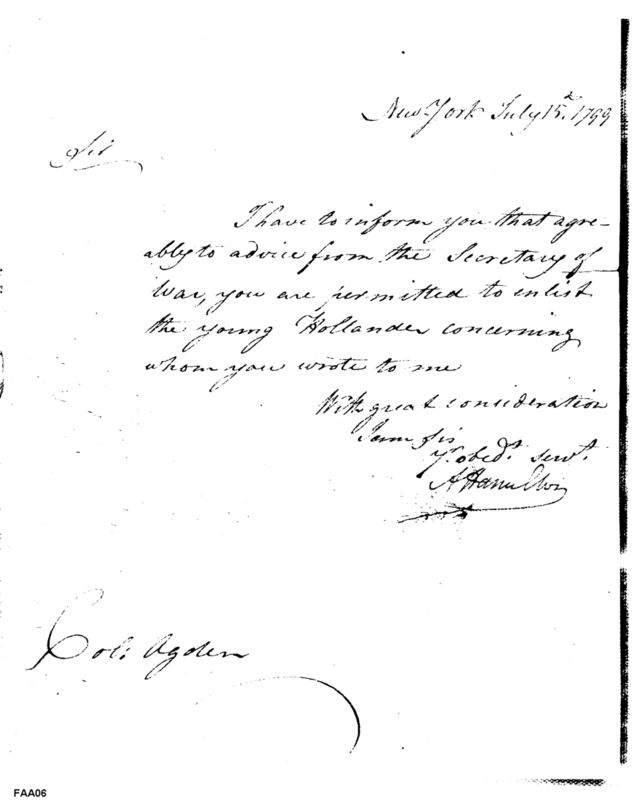 New York July 15.th 1799
Sir
I have to inform you that agre-
ably to advice from the Secretary of
War, you are permitted to enlist
the young Hollander concerning
whom you wrote to me
With great consideration
I am Sir
Yr. obedt. servt.
A Hamilton
Col: Ogden
FAA06